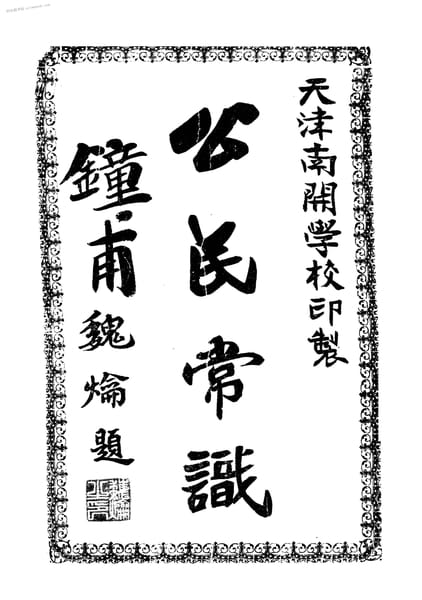 天津南開學校印製
公民常識
鐘甫魏爚題